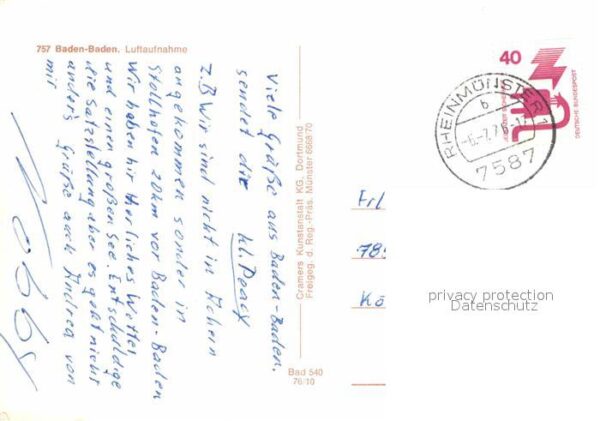 757 Baden-Baden. Luftaufnahme
Viele Grüße aus Baden-Baden.
sendet die kl.
Z.B Wir sind nicht in Achern
angekommen sonder in
Stollhofen 20km vor Baden-Baden
Wir haben hir Herliches Wetter
und einen großen See. Entschuldige
die Satzstellung aber es geht nicht
anders Grüße auch Andrea von
mir
Cramers Kunstanstalt KG. Dortmund
Freigeg. d. Reg.-Präs. Münster 6668/70
Bad 540
76/10
40
DEUTSCHE BUNDESPOST
RHEINMÜNSTER 1
b
7587
Frl
78
Kö
privacy protection
Datenschutz